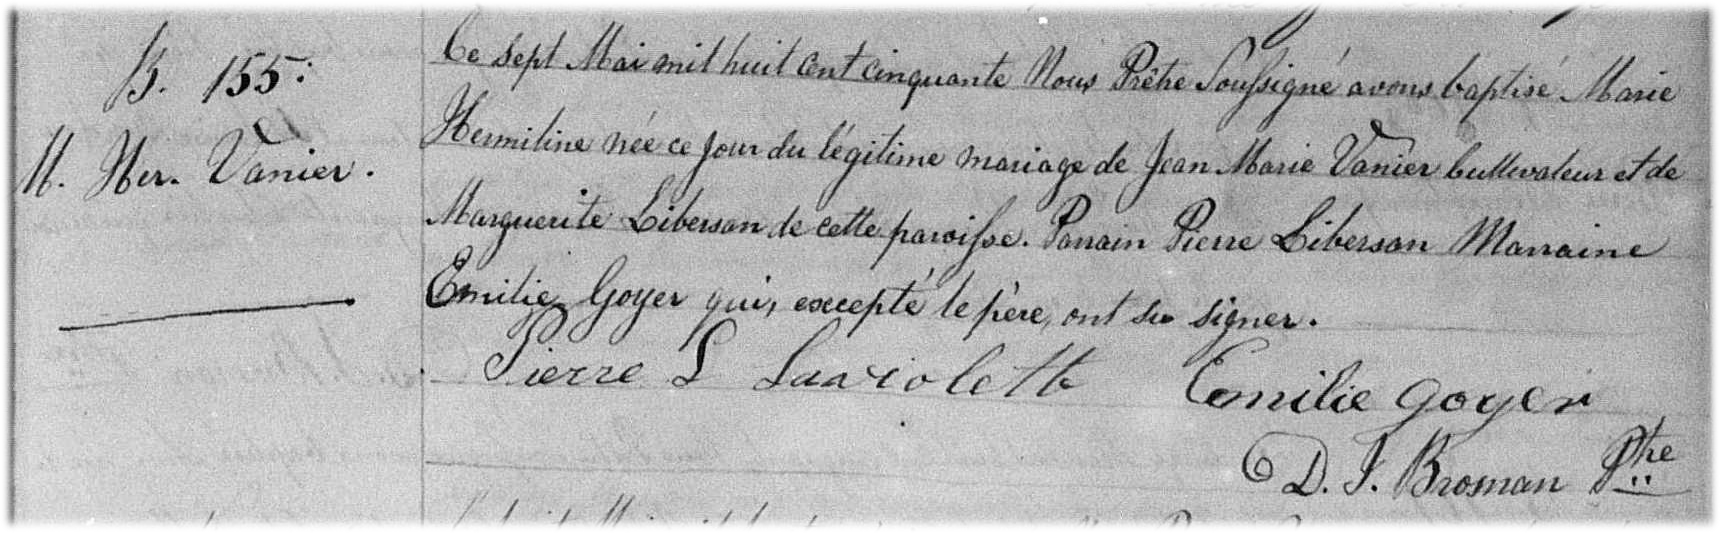 B. 155.
M. Her. Vanier.
Ce sept Mai mil huit cent cinquante Nous Prêtre Soussigné avons baptisé Marie
Hermiline née ce jour du légitime mariage de Jean Marie Vanier Cultivateur et de
Marguerite Liberson de cette paroisse. Parrain Pierre Liberson Marraine
Emilie Goyer qui, excepté le père, ont su signer.
Pierre L Laviolette Emilie Goyer
D. J. Brosnan Ptre